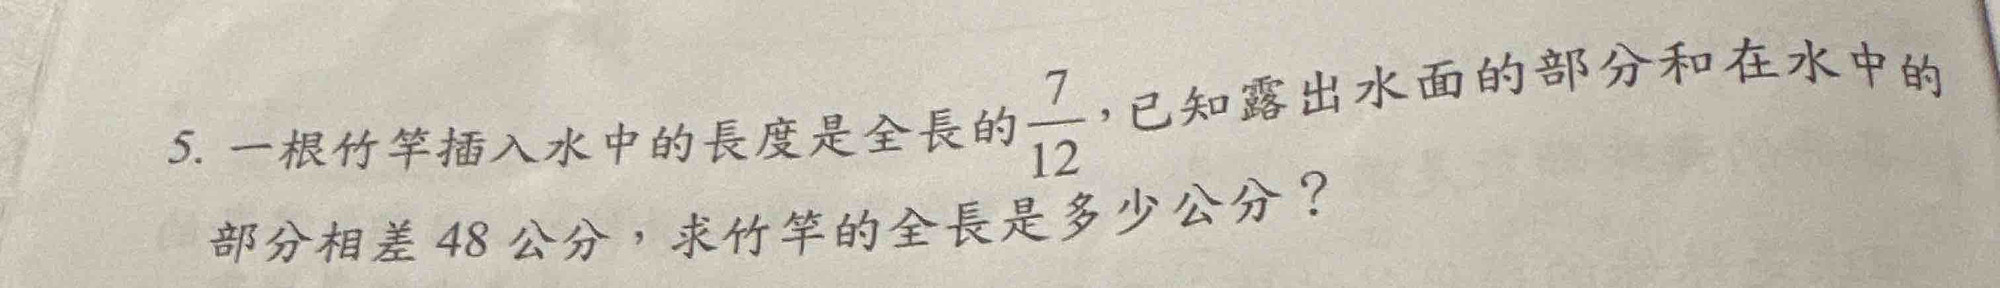 5. 一根竹竿插入水中的長度是全長的7/12，已知露出水面的部分和在水中的
部分相差 48 公分，求竹竿的全長是多少公分？